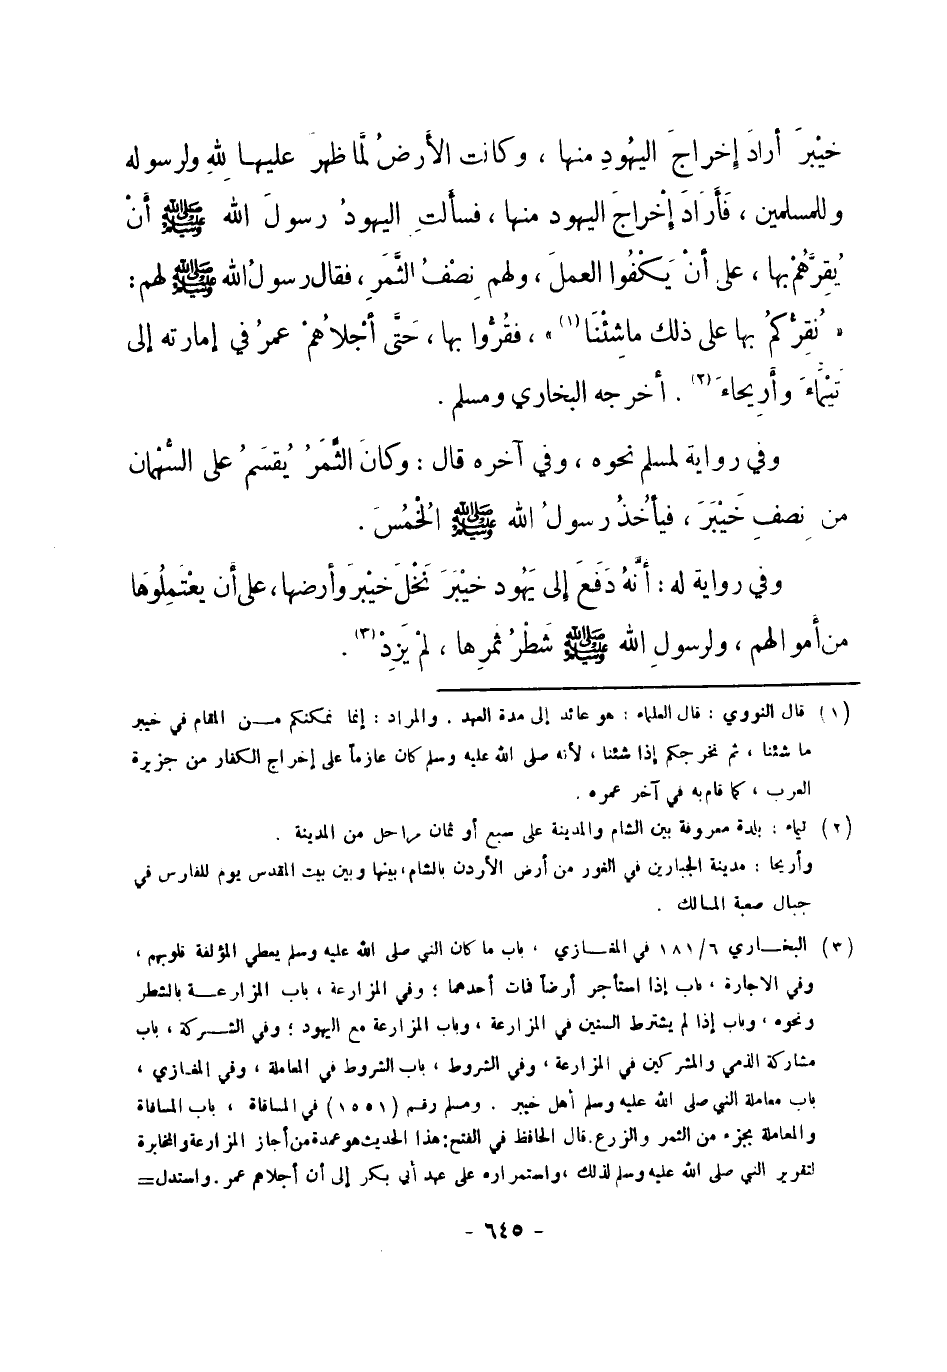 خيْبرَ أرادَ إخراجَ اليهُودِ منها ، وكانت الأَرضُ لمَّا ظهرَ عليهـا لِلهِ ولرسوله
وللمسلمين ، فَأَرَادَ إخْراجَ اليهود منها ، فسأَلتِ اليهودُ رسولَ الله ﷺ أنْ
يُقِرَّهُمْ بها ، على أنْ يَكْفُوا العملَ ، ولهم نِصْفُ الثَّمَرِ ، فقال رسولُ الله ﷺ لهم :
« نُقِرُّكمُ بها على ذلك ماشِئْنَا (١) » ، فقُرُّوا بها ، حَتَّى أجْلاهُمْ عمرُ في إمارته إلى
تَيْمَاءَ وأَرِيحاءَ (٢) . أخرجه البخاري ومسلم .
وفي رواية لمسلم نحوه ، وفي آخره قال : وكانَ الثَّمَرُ يُقسَمُ على السُّهْمان
من نِصفِ خَيْبَرَ ، فيأخُذُ رسولُ الله ﷺ الخُمُسَ .
وفي رواية له : أنَّهُ دَفَعَ إلى يَهُود خيْبَرَ نَخْلَ خيْبرَ وأرضها، على أن يعْتَمِلُوَها
من أموالهم ، ولرسولِ الله ﷺ شَطْرُ ثمرِها ، لمْ يَزِدْ (٣) .
(١) قال النووي : قال العلماء : هو عائد إلى مدة العهد . والمراد : إنما نمكنكم مـــن المقام في خيبر
ما شئنا ، ثم نخرجكم إذا شئنا ، لأنه صلى الله عليه وسلم كان عازماً على إخراج الكفار من جزيرة
العرب ، كما قام به في آخر عمره .
(٢) تيماء : بلدة معروفة بين الشام والمدينة على سبع أو ثمان مراحل من المدينة .
وأريحا : مدينة الجبارين في الغور من أرض الأردن بالشام، بينها وبين بيت المقدس يوم للفارس في
جبال صعبة المسالك .
(٣) البخـــاري ١٨١/٦ في المغـــازي ، باب ما كان النبي صلى الله عليه وسلم يعطي المؤلفة قلوبهم ،
وفي الاجارة ، باب إذا استأجر أرضاً فمات أحدهما ؛ وفي المزارعة ، باب المزارعـــة بالشطر
ونحوه ، وباب إذا لم يشترط السنين في المزارعة ، وباب المزارعة مع اليهود ؛ وفي الشـــركة ، باب
مشاركة الذمي والمشركين في المزارعة ، وفي الشروط ، باب الشروط في المعاملة ، وفي المغـازي ،
باب معاملة النبي صلى الله عليه وسلم أهل خيبر . ومسلم رقم (١٥٥١) في المساقاة ، باب المساقاة
والمعاملة بجزء من الثمر والزرع. قال الحافظ في الفتح: هذا الحديث هو عمدة من أجاز المزارعة والمخابرة
لتقرير النبي صلى الله عليه وسلم لذلك ،واستمراره على عهد أبي بكر إلى أن أجلاهم عمر . واستدل=
- ٦٤٥ -